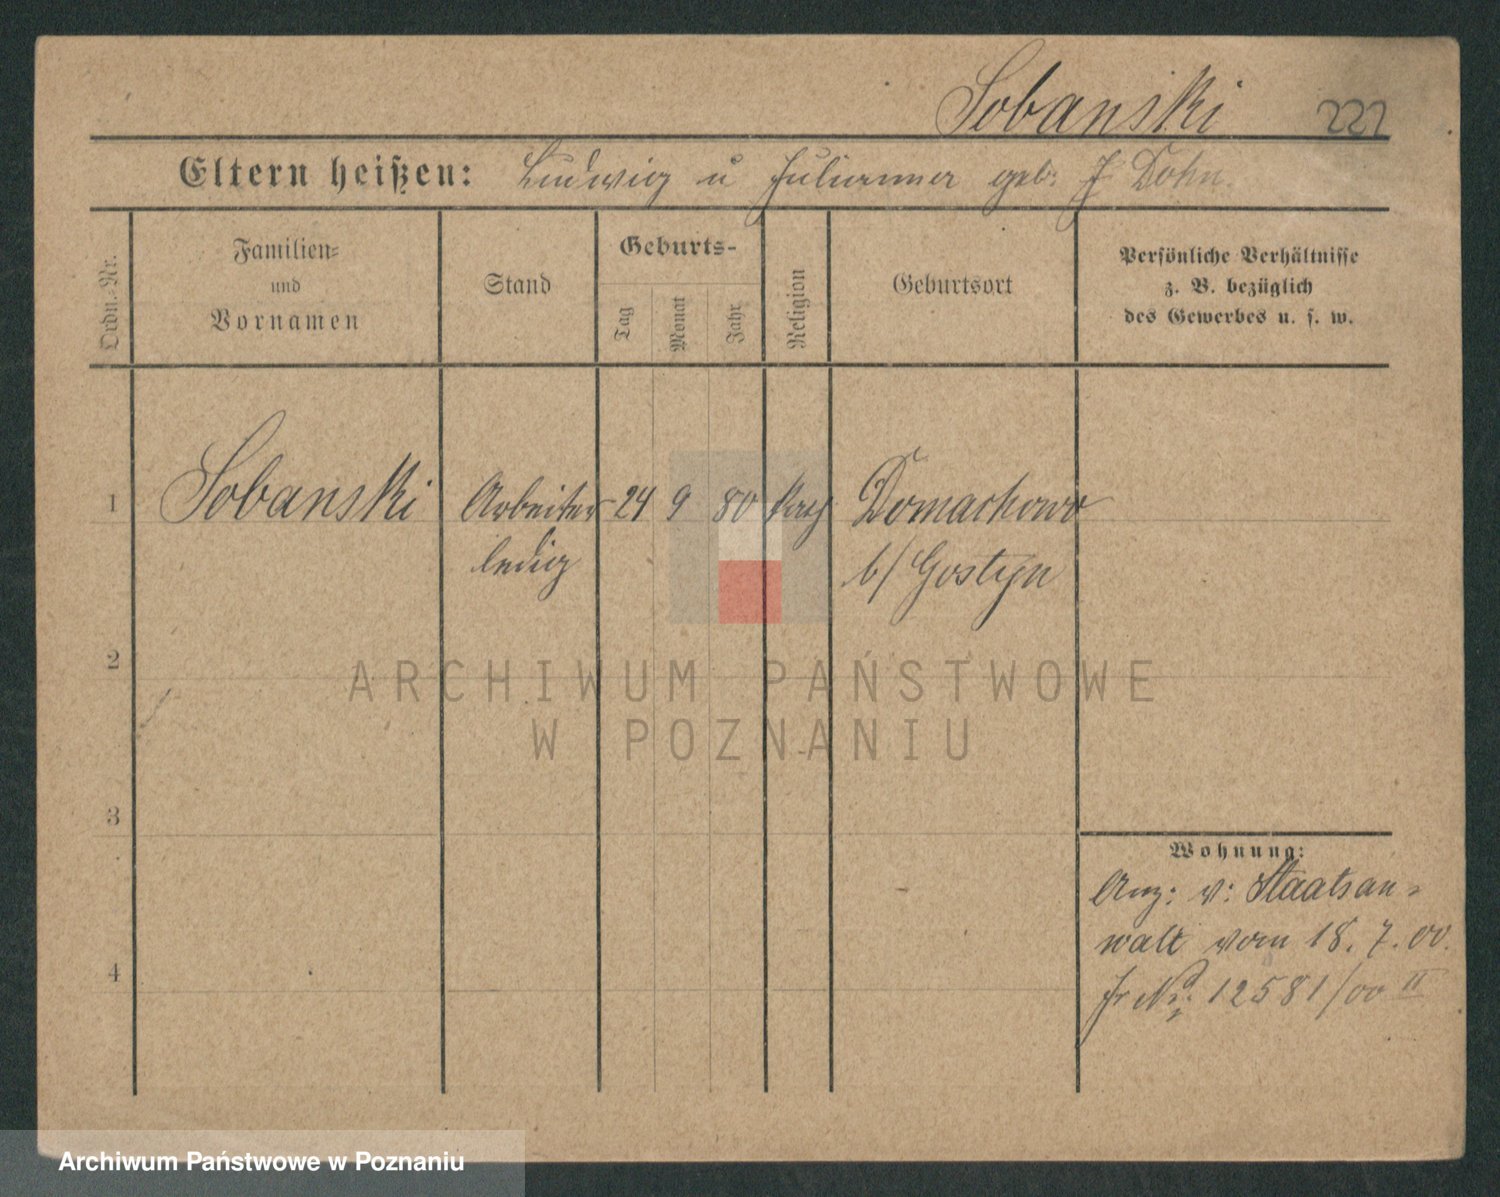 Sobanski 221
Eltern heißen: Ludwig u Julianna geb: J Dohn.
Ordn.-Nr.
Familien=
und
Vornamen
Stand
Geburts-
Tag
Monat
Jahr
Religion
Geburtsort
Persönliche Verhältnisse
z. B. bezüglich
des Gewerbes u. s. w.
1 Sobanski Arbeiter 24 9 80 Domachowo
ledig b/ Gostyn
2
ARCHIWUM PAŃSTWOWE
W POZNANIU
3
Wohnung:
Anz: v: Staatsan-
walt vom 18. 7. 00.
4
12581/00 II
Archiwum Państwowe w Poznaniu